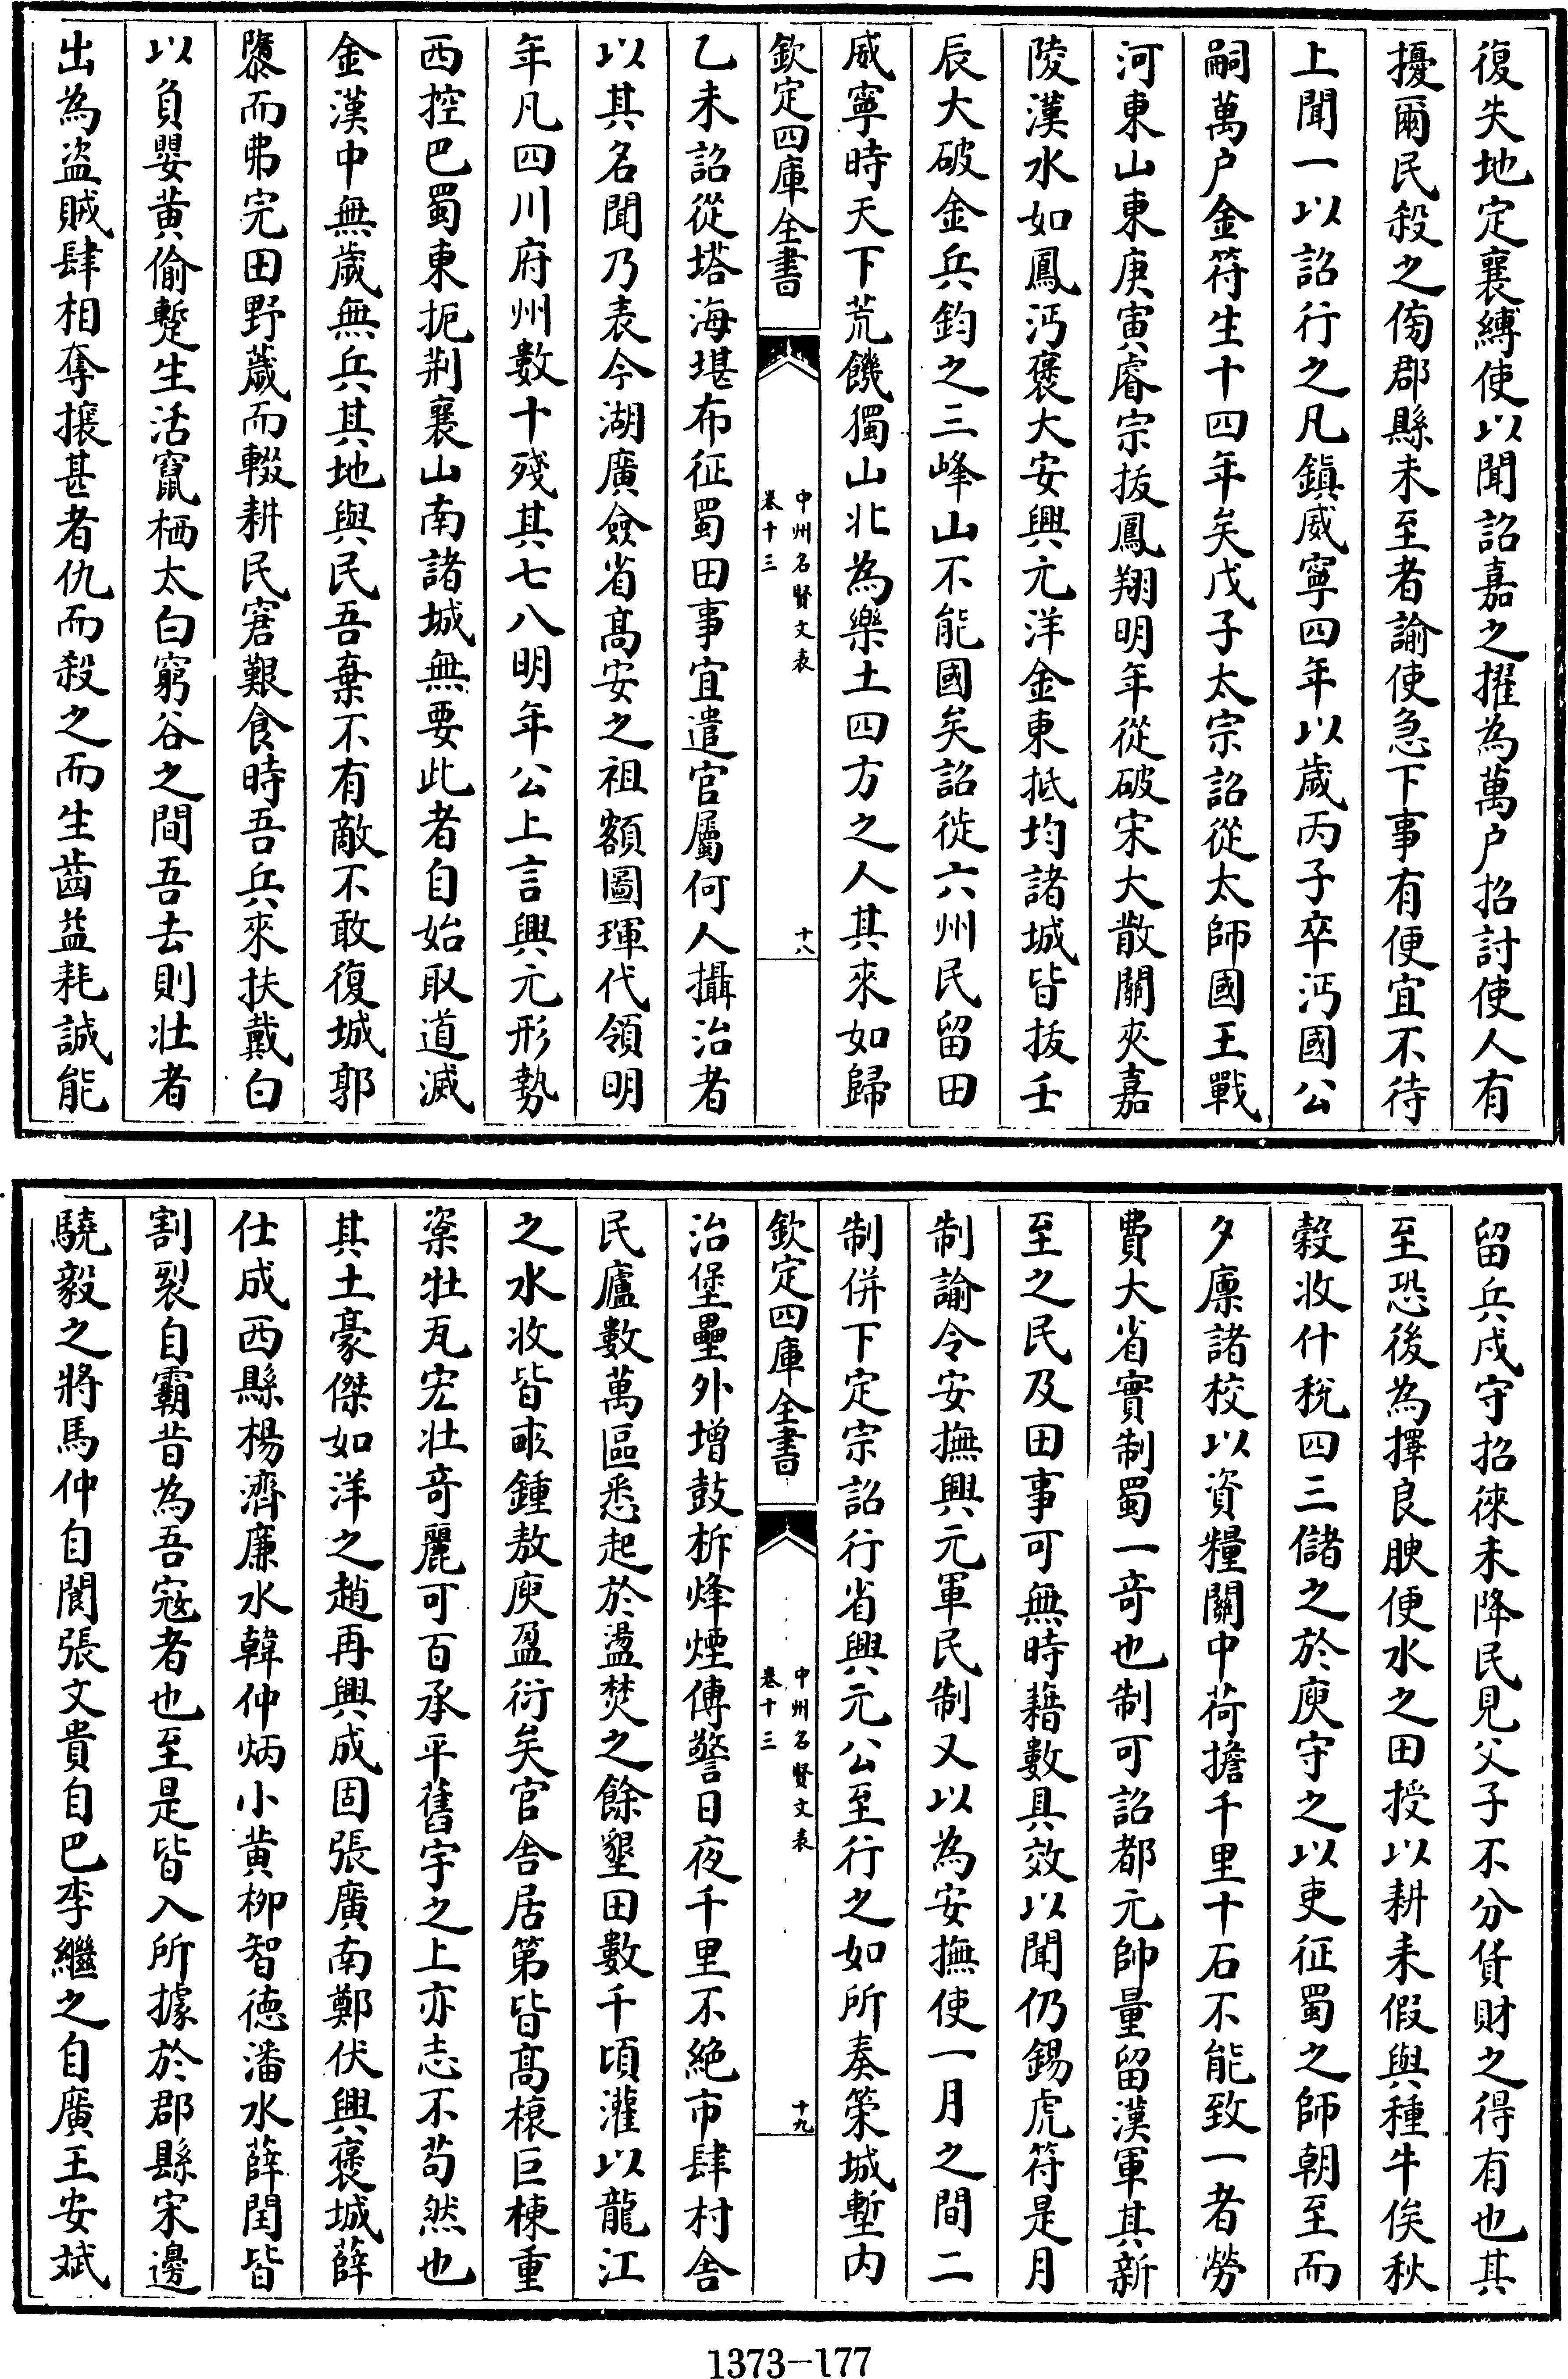 復失地定襄縛使以聞詔嘉之擢為萬户招討使人有
擾爾民殺之傍郡縣未至者諭使急下事有便宜不待
上聞一以詔行之凡鎮威寧四年以歲丙子卒沔國公
嗣萬户金符生十四年矣戊子太宗詔從太師國王戰
河東山東庚寅睿宗拔鳳翔明年從破宋大散關夾嘉
陵漢水如鳳沔褒大安興元洋金東抵均諸城皆拔壬
辰大破金兵鈞之三峰山不能國矣詔徙六州民留田
威寧時天下荒饑獨山北為樂土四方之人其來如歸
欽定四庫全書
中州名賢文表
卷十三
十八
乙未詔從塔海堪布征蜀田事宜遣官屬何人攝治者
以其名聞乃表今湖廣僉省髙安之祖額圖琿代領明
年凡四川府州數十殘其七八明年公上言興元形勢
西控巴蜀東扼荆襄山南諸城無要此者自始取道滅
金漢中無歲無兵其地與民吾棄不有敵不敢復城郭
隳而弗完田野薉而輟耕民窘艱食時吾兵來扶戴白
以負嬰黄偷蹔生活竄栖太白窮谷之間吾去則壯者
出為盗賊肆相奪攘甚者仇而殺之而生齒益耗誠能
留兵戍守招徠未降民見父子不分貨財之得有也其
至恐後為擇良腴便水之田授以耕耒假與種牛俟秋
穀收什稅四三儲之於庾守之以吏征蜀之師朝至而
夕廪諸校以資糧關中荷擔千里十石不能致一者勞
費大省實制蜀一竒也制可詔都元帥量留漢軍其新
至之民及田事可無時藉數具效以聞仍錫虎符是月
制諭令安撫興元軍民制又以為安撫使一月之間二
制併下定宗詔行省興元公至行之如所奏築城塹内
欽定四庫全書
中州名賢文表
卷十三
十九
治堡壘外增鼓柝烽煙傳警日夜千里不絶市肆村舍
民廬數萬區悉起於盪焚之餘墾田數千頃灌以龍江
之水收皆畝鍾敖庾盈衍矣官舍居第皆髙榱巨棟重
㮚牡瓦宏壯竒麗可百承平舊宇之上亦志不苟然也
其土豪傑如洋之趙再興成固張廣南鄭伏興褒城薛
仕成西縣楊濟廉水韓仲炳小黄柳智徳潘水薛閏皆
割裂自霸昔為吾寇者也至是皆入所據於郡縣宋邊
驍毅之將馬仲自閬張文貴自巴李繼之自廣王安斌
1373-177